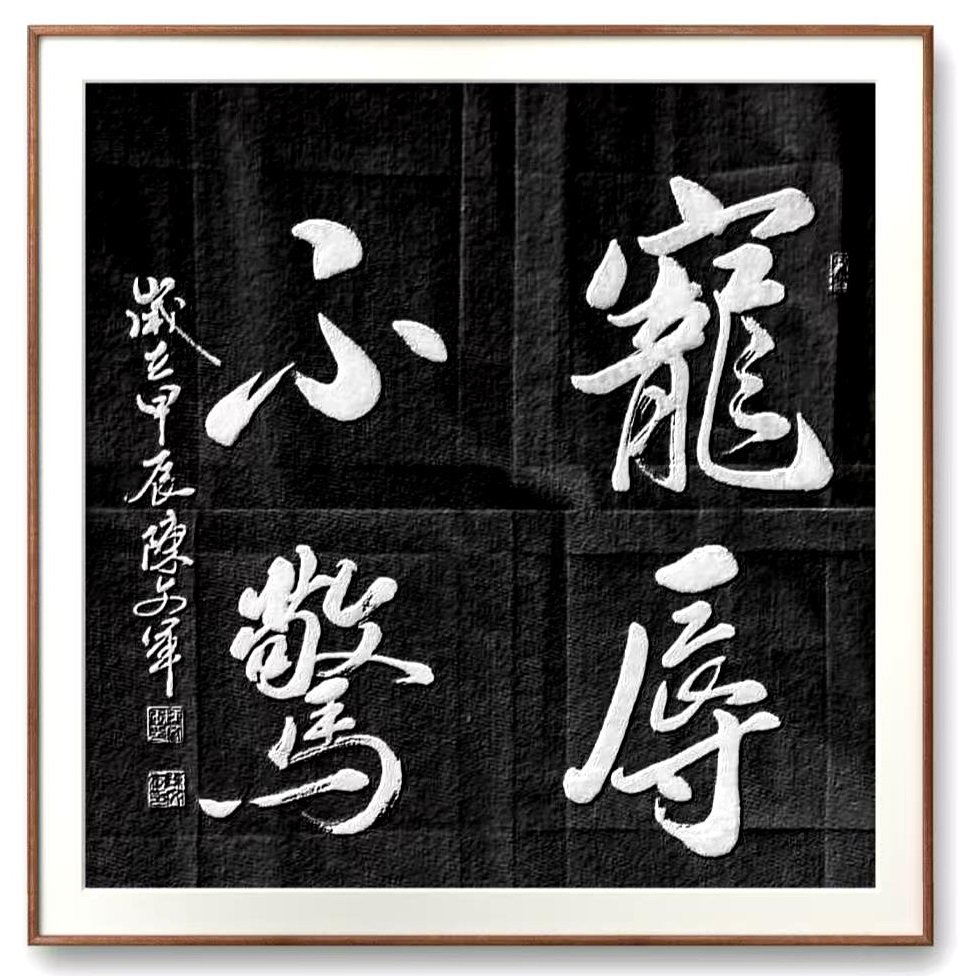 寵辱
不驚
歲在甲辰陳文軍